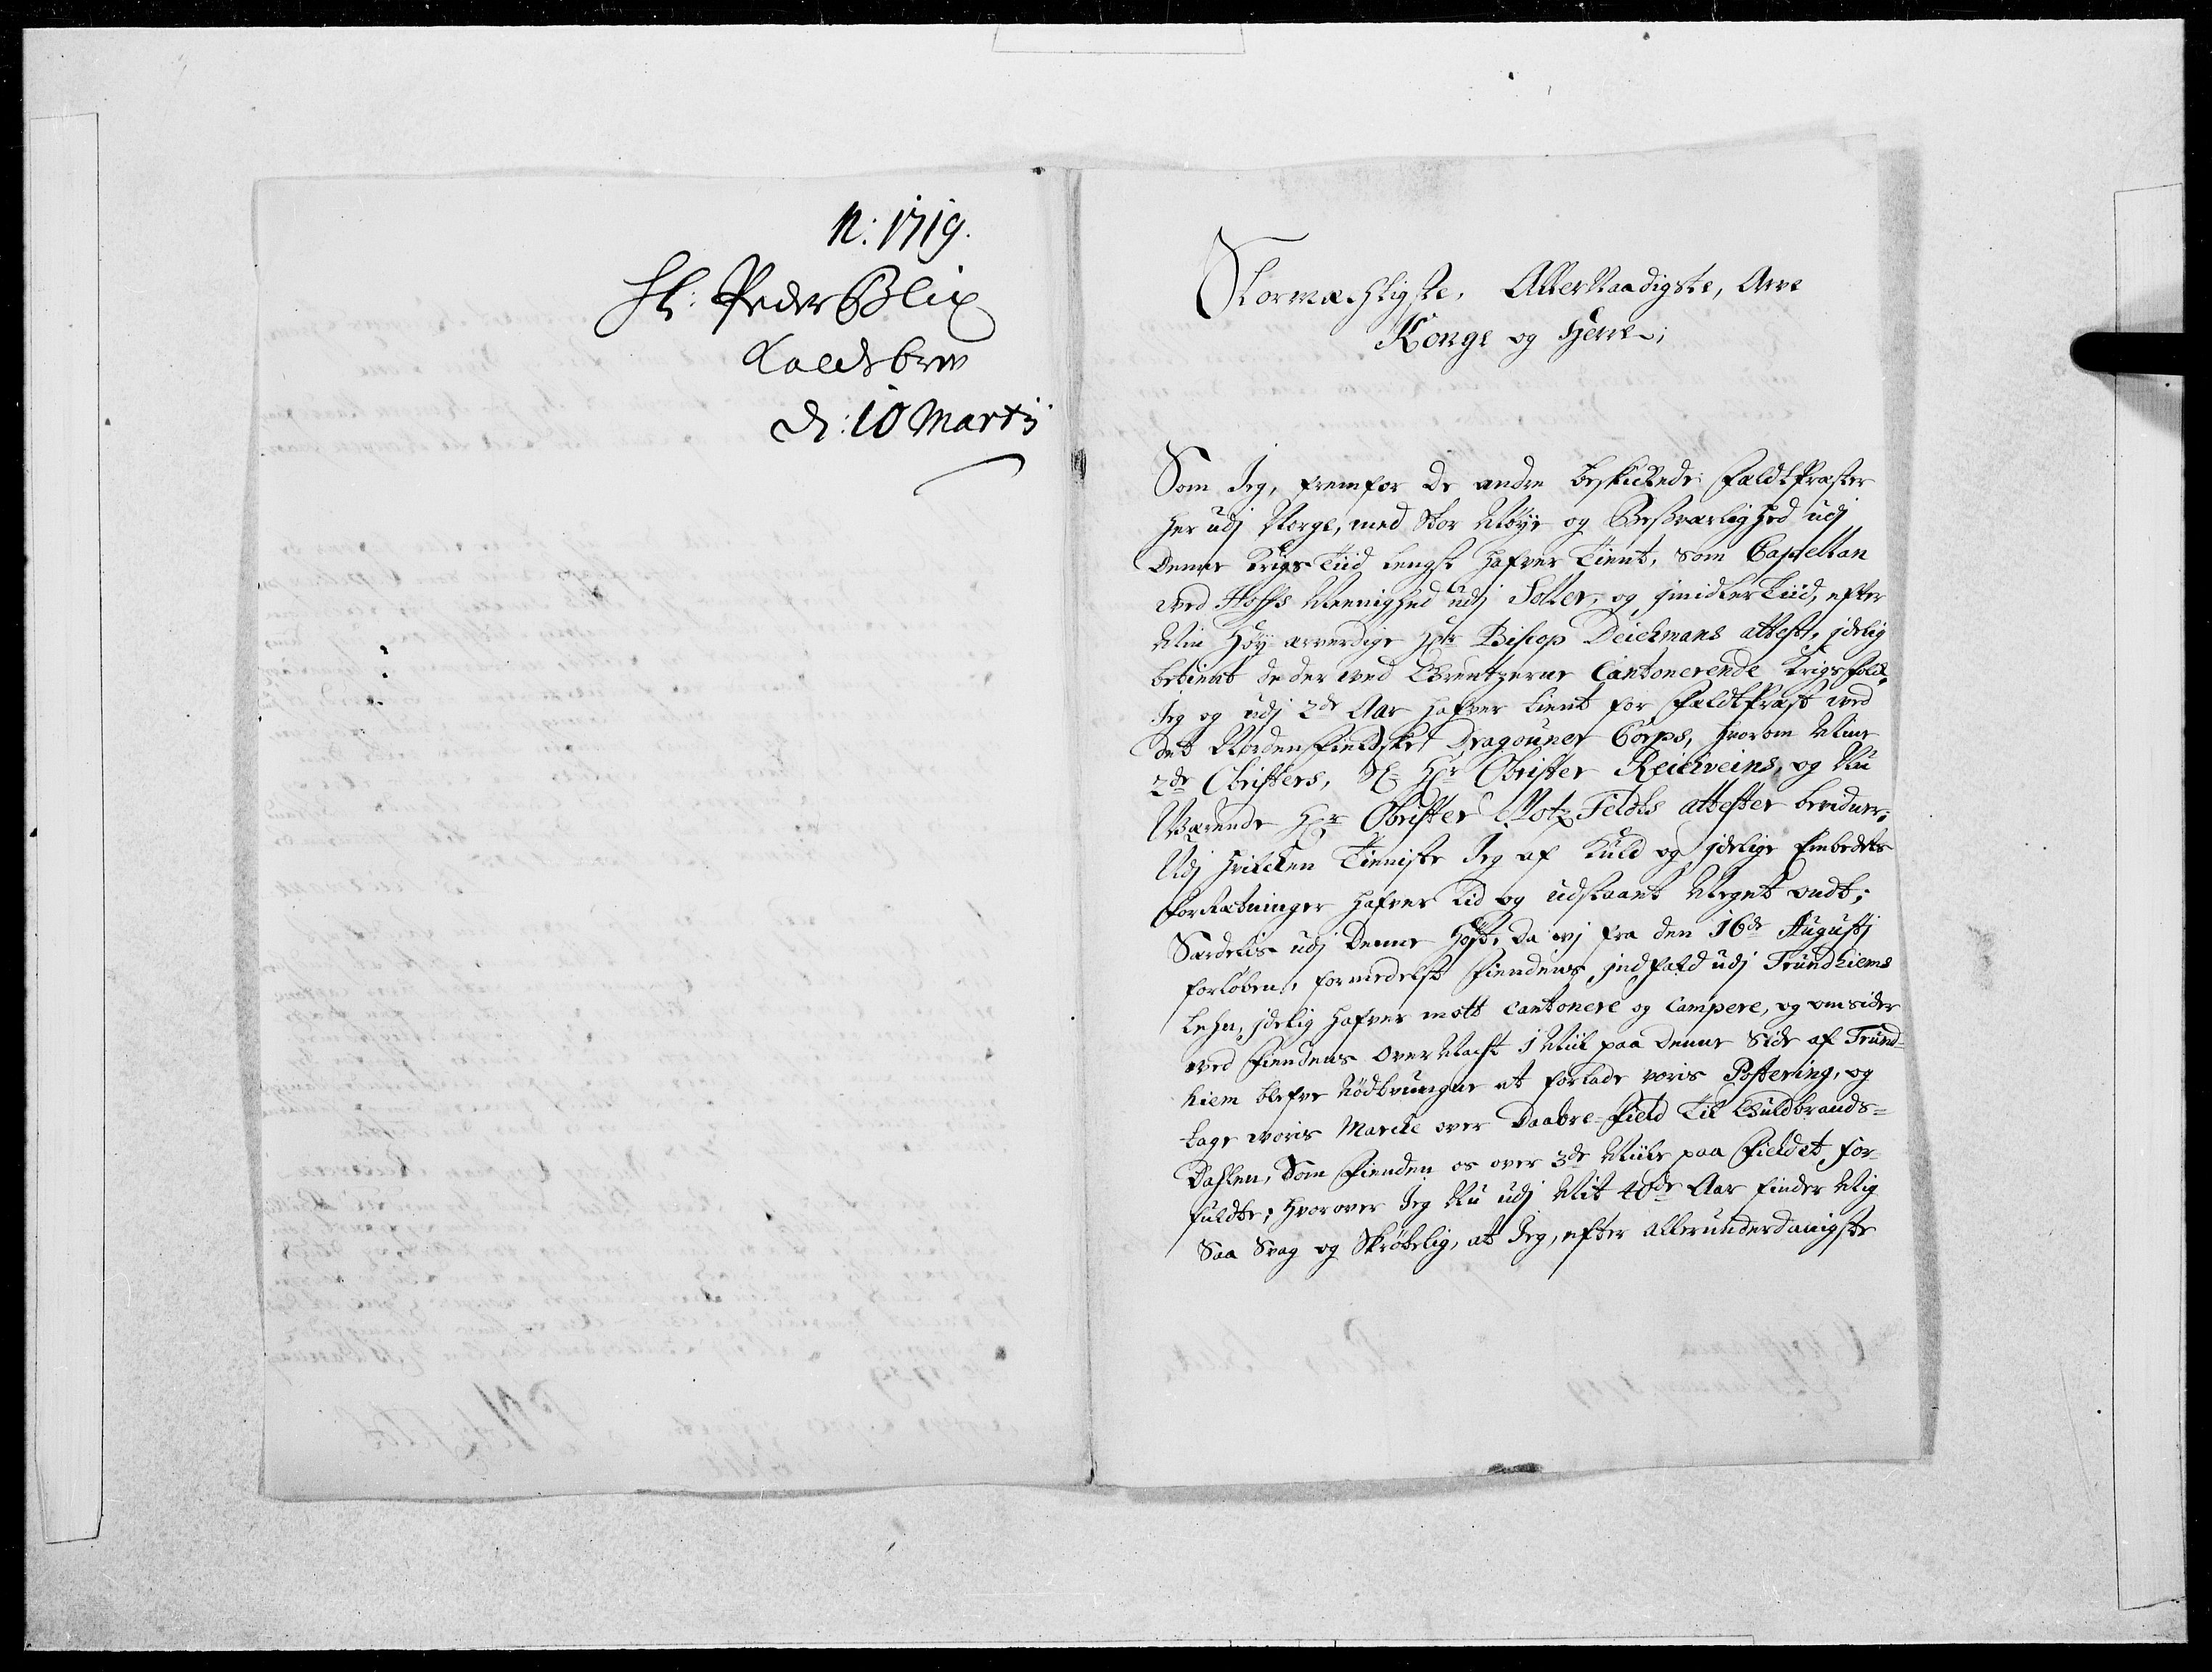 N: 1719.
Hr: Peder Blix
Kaldsbrev
d: 10 Martij
Stormæchtigste, AllerNaadigste, Arve
Konge og Herre;
Som Jeg, fremfor de andre beskickede Fældtpræster
her udj Norge, med Stor Møye og Besværlighed udj
Denne Krigs Tiid lengst hafver Tient, som Capellan
ved Hoffs Meenighed udj Solløer, og jmidlertiid, efter
Min Høy ærverdige Her Biskop Deichmans attest, jdelig
betient de der ved Grentzerne Cantonerende Krigsfolk,
Jeg og udj 2de Aar hafver tient for Fældtpræst ved
det Nordenfieldske Dragouner Corps, hvorom Mine
2de Obristers, Hr Obrister Reichweins, og Nu
Værende Hr Obrister Motzfeldts attester bevidner;
Udj hvilcken Tienniste Jeg af Kuld og jdelige Embedets
Forrætninger hafver Lid og udstaaet Meget ondt;
Særdelis udj Denne Høst, da vj fra den 16de Augustj
forløben, formedelst Fiendens jndfald udj Trundhiems
Lehn, jdelig hafver mott cantonere og Campere, og omsider
ved Fiendens Overmacht 1 Miil paa Denne Side af Trund-
hiem blefve Nødtvungne at forlade voris Postering, og
tage voris Marche over Daabre-Field til Guldbrands-
Dahlen, Som Fienden os over 3de Miile paa Fieldet for-
fuldte; Hvorover Jeg Nu udj Mit 40de Aar finder Mig
Saa Svag og Skrøbelig, at Jeg, efter allerunderdanigste